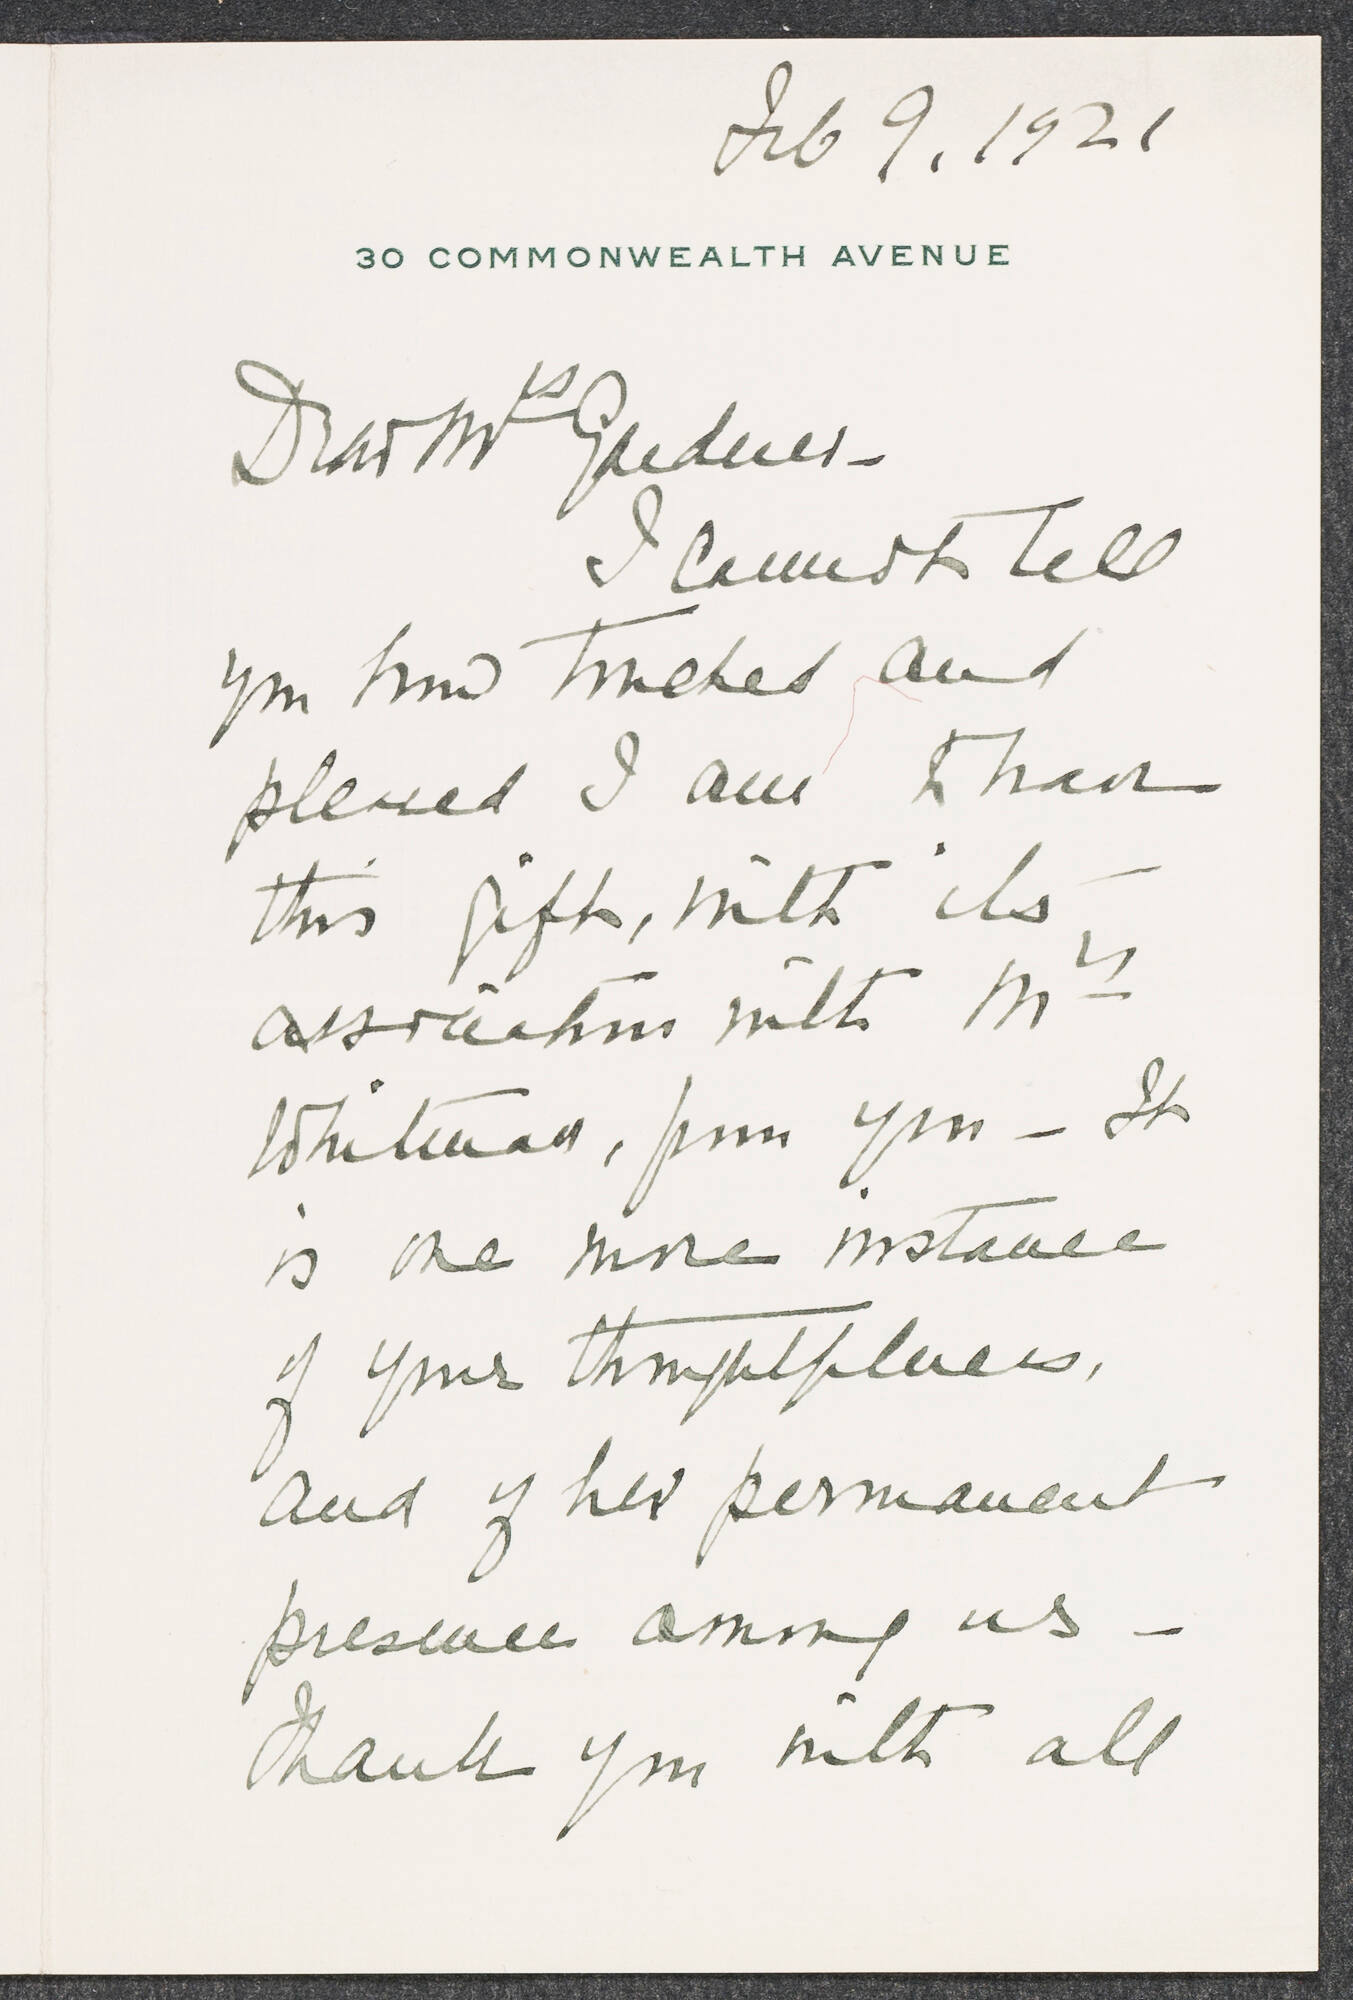 Feb 9, 1921
30 COMMONWEALTH AVENUE
Dear Mrs Gardner -
I cannot tell
you how touched and
pleased I am to have
this gift, with its
association with Mrs
Whitman, from you - It
is one more instance
of your thoughtfulness,
and of her permanent
presence among us -
Thank you with all